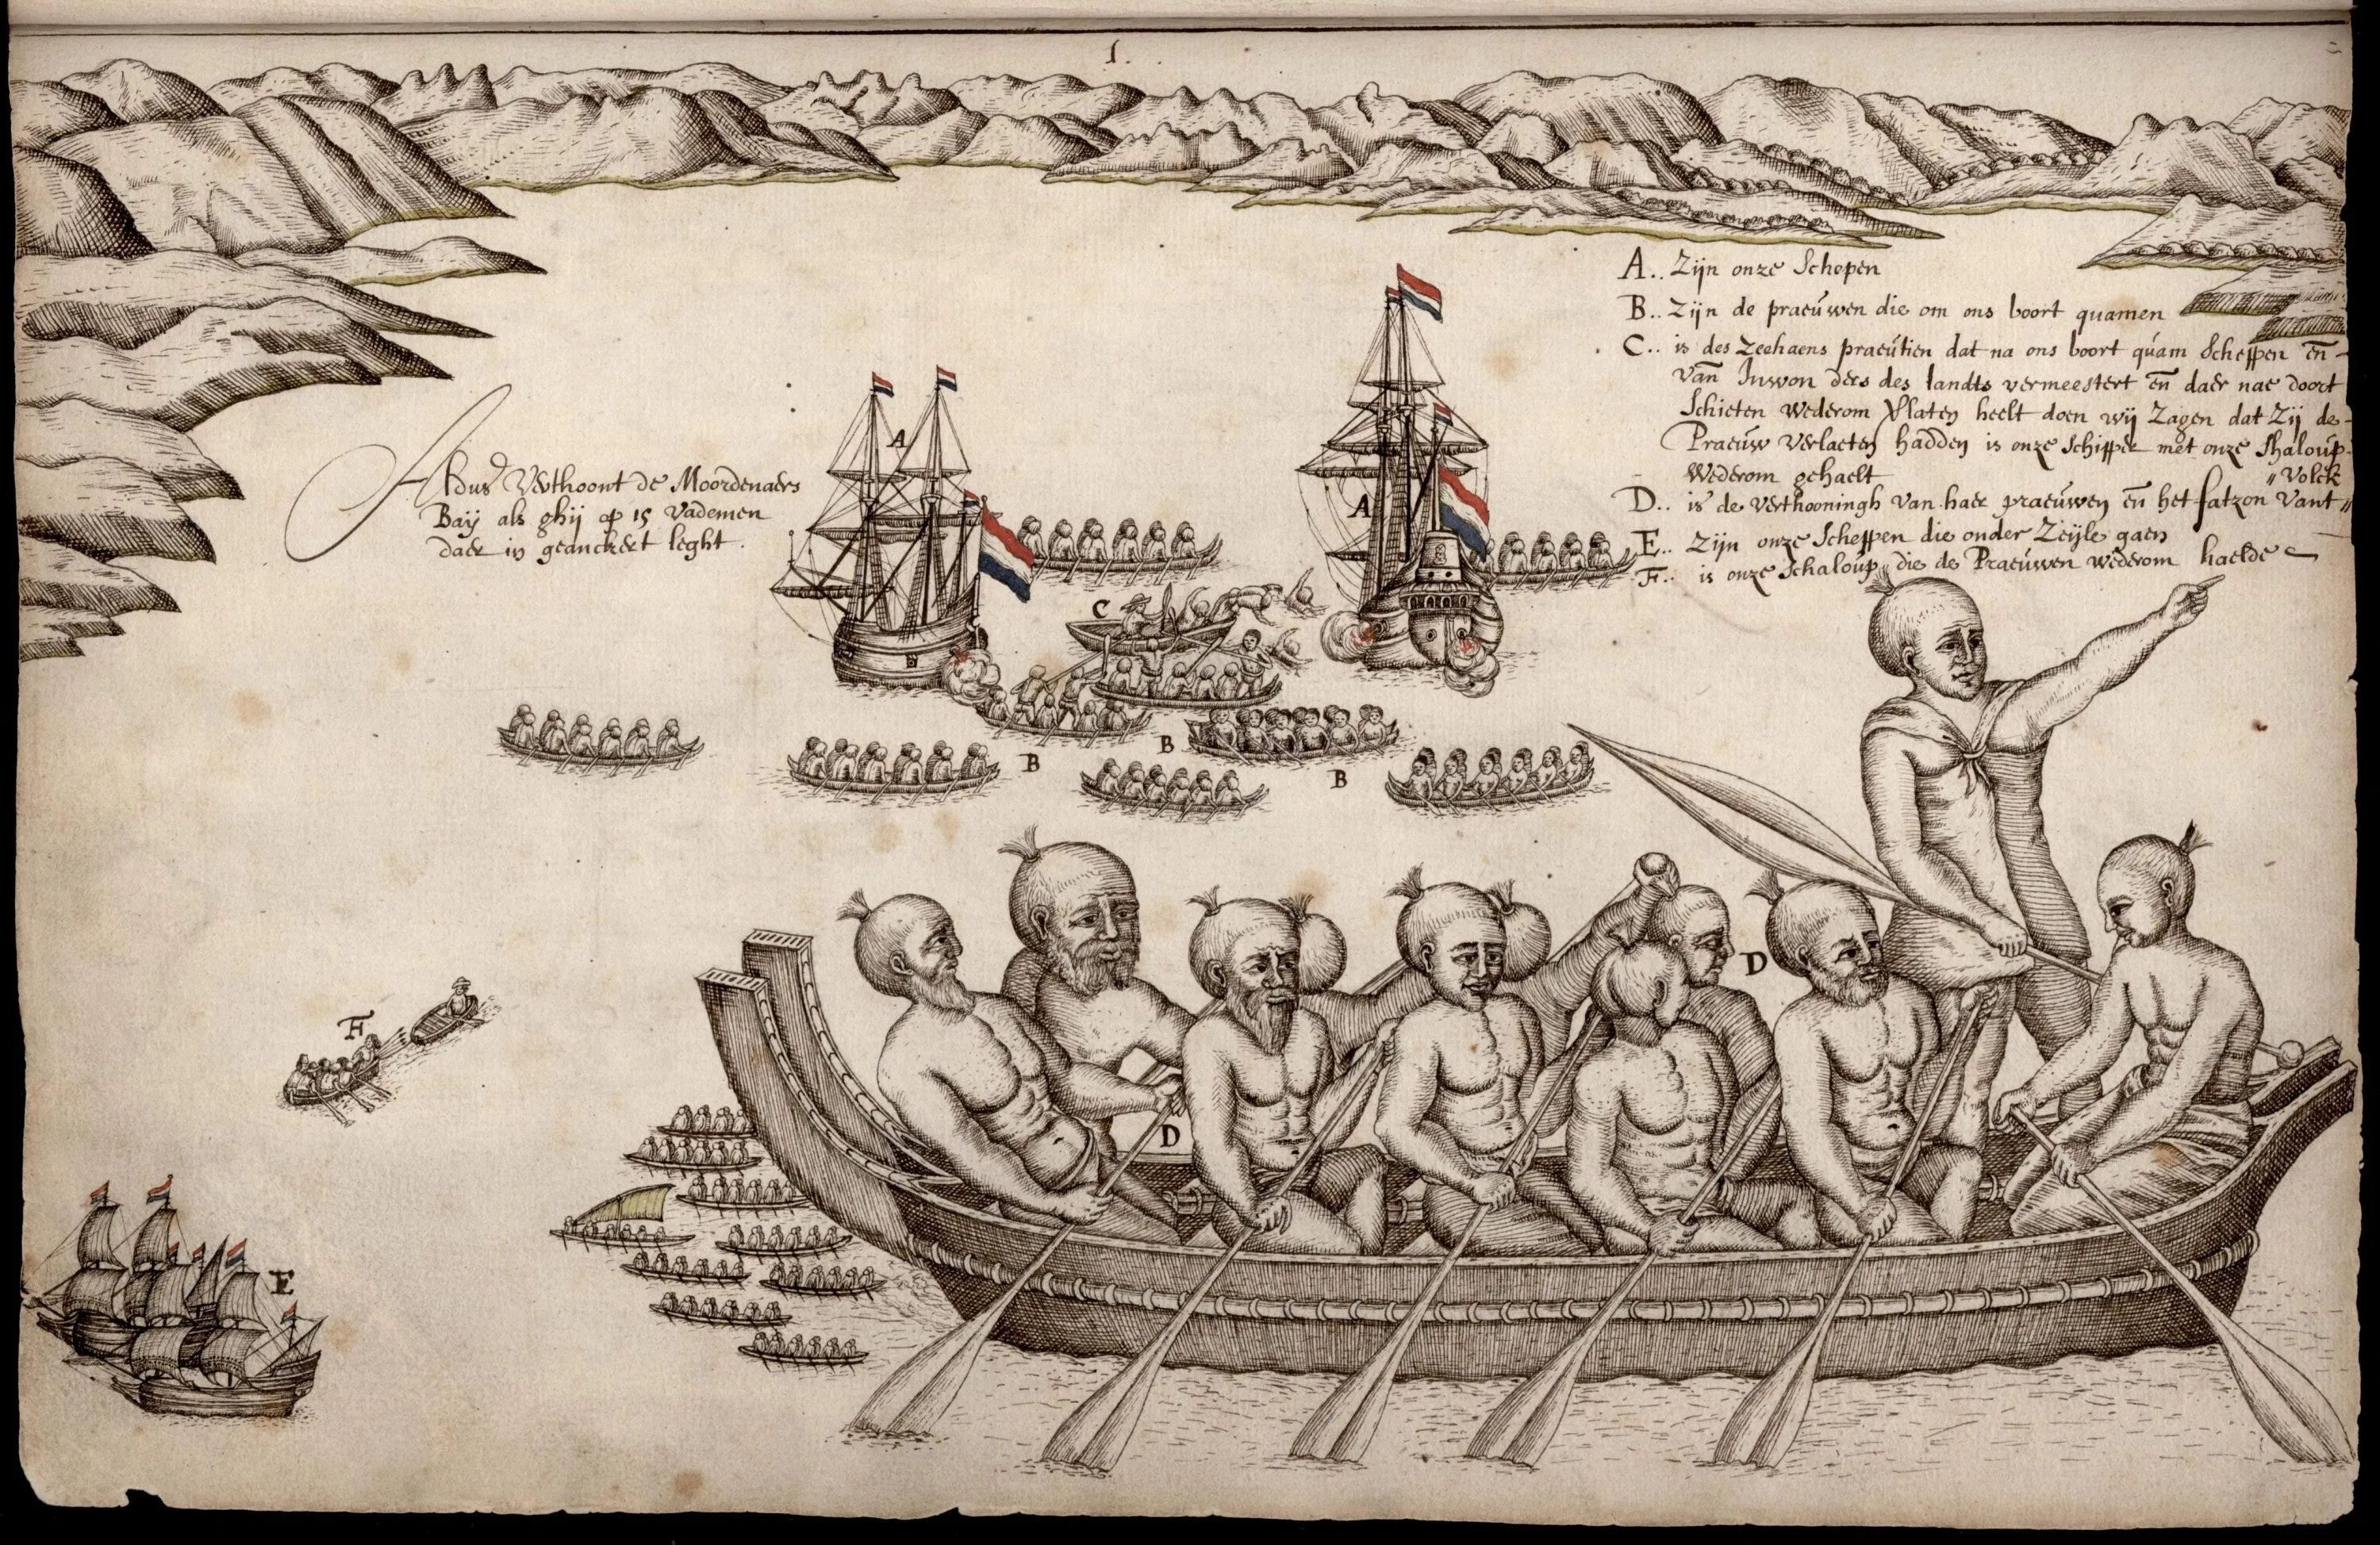 1.
A.. Zijn onze Schepen
B.. Zijn de praeúwen die om ons boort quamen
C.. is des Zeehaens praeútien dat na ons boort qúam Scheppen en̄
van Inwon ders des landts vermeestert en̄ daer nae doort
Schieten wederom Vlaten heelt doen wij Zagen dat Zij de
Praeúw Verlaeten hadden is onze Schipper met onze Shaloúp
Wederom gehaelt
D.. is de Verthooningh van haer praeúwen en̄ het fatzon Vant
"Volck
E.. Zijn onze Scheppen die onder Zeijle gaen
F.. is onze Schaloúp die de Praeúwen wederom haelde
Aldus Verthoont de Moordenaers
Baij als ghij op 15 Vademen
daer in geanckert leght.
A
A
C
B
B
B
D
D
F
E